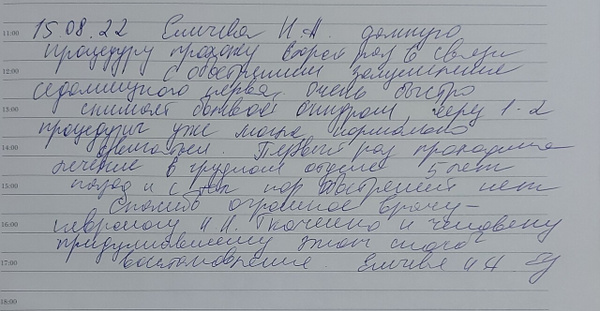 11:00 15.08.22 Еличева Н.А. данную
процедуру прохожу второй раз в связи
12:00 с обострением защемление
седалищного нерва, очень быстро
13:00 снимает болевой синдром, через 1-2
процедуры уже могла нормально
14:00 двигаться. Первый раз проходила
лечение в грудном отделе 5 лет
15:00 назад и с тех пор обострений нет
Спасибо огромное врачу-
16:00 неврологу Н.Н. Ткаченко и человеку
придумавшему этот способ
17:00 восстановления. Еличева Н.А.
18:00